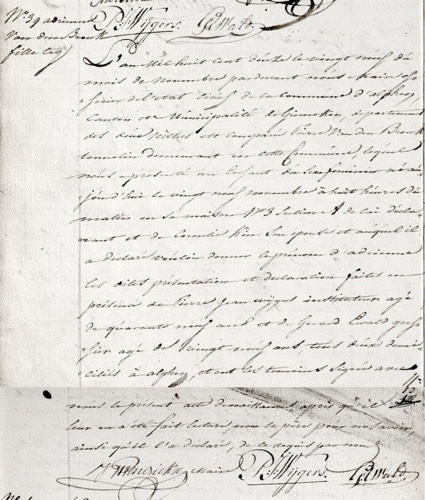 P. J. Wijgers. G Ewald
N.º 39 adrienne
Van den Broek
fille leg
L'an Mil huit cent douze le vingt neuf du
mois de Novembre pardevant nous Maire offi
cier de l'etat Civil de la Commune d'alphen,
Canton et Municipalité de Ginneken, departement
des deux Nethes est comparu Pierre Van den Broek
demeurant en cette Commune, lequel
nous a presenté un Enfant du Sexe feminin né au
jourd'hui le vingt neuf novembre à huit heures du
matin en sa maison N.º 3 Section A de lui décla
rant et de Cornelie son epouse et auquel il
a declaré vouloir donner le prénom d'adrienne
les dites présentation et declaration faites en
présence de Pierre Jean wijgers instituteur agé
de quarante neuf ans et de Gerard Ewald
agé de vingt neuf ans, tous deux domi
ciliés à alphen, et ont les temoins signé avec
nous le present acte denaissance, après qu'il
leur en a été fait lecture non le père pour ne savoir,
ainsi qu'il l'a declaré, de ce requis par nous
Maire P. J. Wijgers. G Ewald